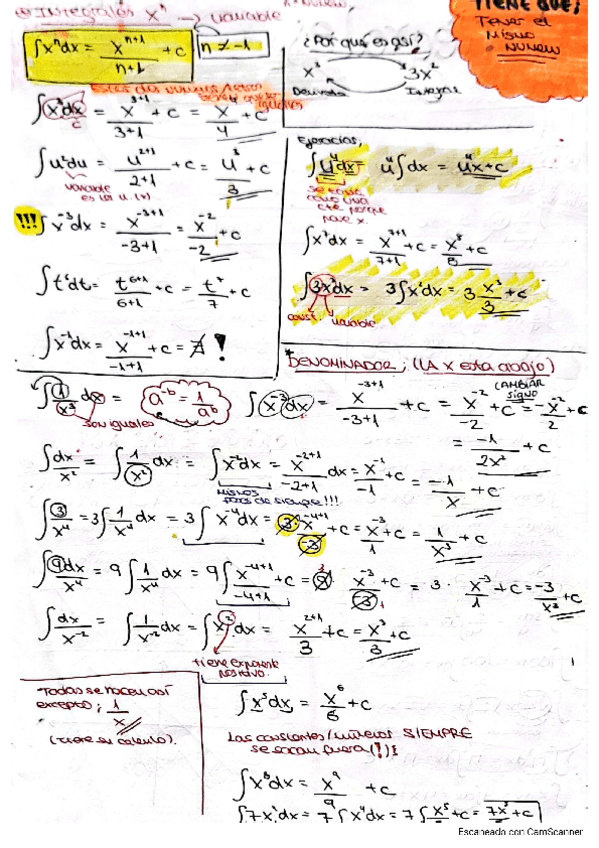 Integrales xⁿ → variable
TIENE QUE;
TENER EL
MISMO
NUMERO
∫xⁿdx = xⁿ⁺¹/(n+1) + c
n ≠ -1
¿Por qué es así?
x³ 3x²
Derivada Integral
∫x³dx = x³⁺¹/(3+1) + c = x⁴/4 + c
∫u²du = u²⁺¹/(2+1) + c = u³/3 + c
variable
es la u.
!!! ∫x⁻³dx = x⁻³⁺¹/(-3+1) = x⁻²/-2 + c
∫t⁶dt = t⁶⁺¹/(6+1) + c = t⁷/7 + c
∫x⁻¹dx = x⁻¹⁺¹/(-1+1) + c = ∄ !
Ejercicios;
∫u⁴dx = u⁴∫dx = u⁴x + c
se toma
como una
cte porque
pone x.
∫x⁷dx = x⁷⁺¹/(7+1) + c = x⁸/8 + c
∫3x²dx = 3∫x²dx = 3 x³/3 + c
const. variable
*DENOMINADOR; (LA x esta abajo)
∫1/x³ dx = a⁻ᵇ = 1/aᵇ ∫x⁻³dx = x⁻³⁺¹/(-3+1) + c = x⁻²/-2 + c = -x⁻²/2 + c
CAMBIAR
SIGNO
son iguales
= -1/2x² + c
∫dx/x² = ∫1/x² dx = ∫x⁻²dx = x⁻²⁺¹/(-2+1) dx = x⁻¹/-1 + c = -1/x + c
mismos
pasos de siempre!!!
∫3/x⁴ = 3∫1/x⁴ dx = 3∫x⁻⁴dx = 3·x⁻⁴⁺¹/-3 + c = x⁻³/1 + c = 1/x³ + c
∫9dx/x⁴ = 9∫1/x⁴ dx = 9∫x⁻⁴⁺¹/(-4+1) + c = 9·x⁻³/-3 + c = 3·x⁻³/1 + c = -3/x³ + c
∫dx/x⁻² = ∫1/x⁻² dx = ∫x²dx = x²⁺¹/3 + c = x³/3 + c
tiene exponente
positivo.
Todas se hacen así
excepto; 1/x
(tiene su calculo).
∫x⁵dx = x⁶/6 + c
Las constantes/números SIEMPRE
se sacan fuera (!)
∫x⁸dx = x⁹/9 + c
∫7x⁴dx = 7∫x⁴dx = 7∫x⁵/5 + c = 7x⁵/5 + c
Escaneado con CamScanner